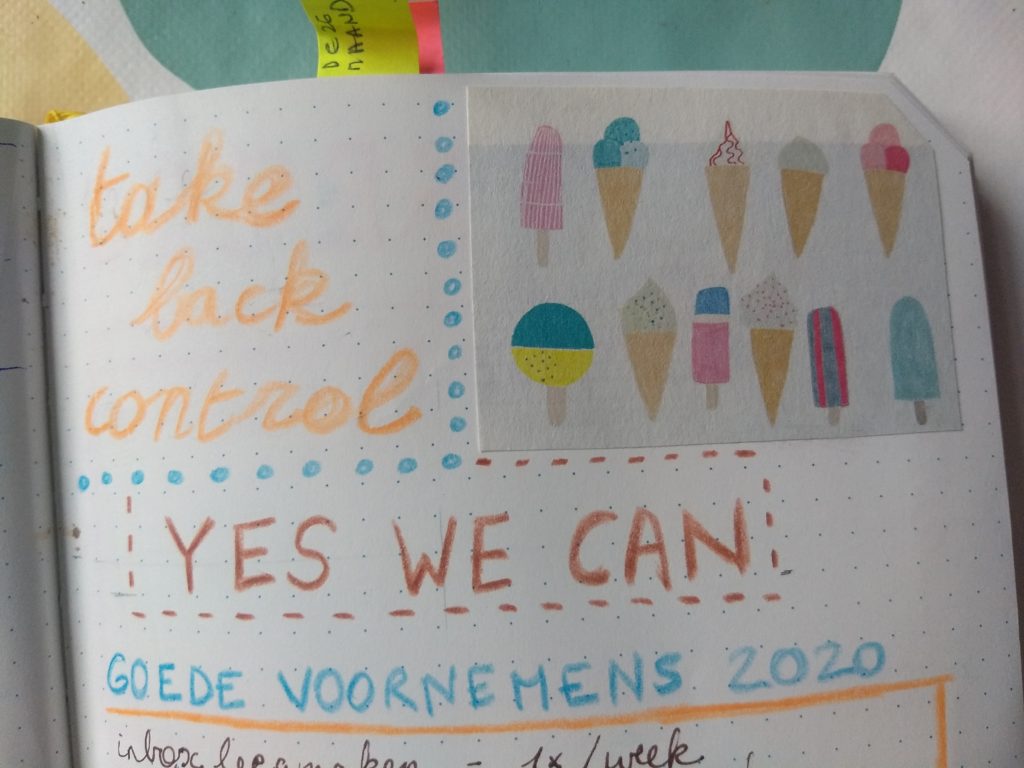 DE 26
MAAND
take
back
control
YES WE CAN
GOEDE VOORNEMENS 2020
inbox leegmaken = 1x/week